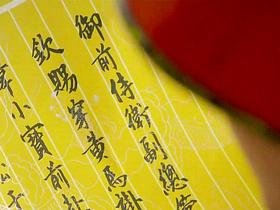 御前侍衛副總管
欽賜穿黃馬褂
韋小寶前赴